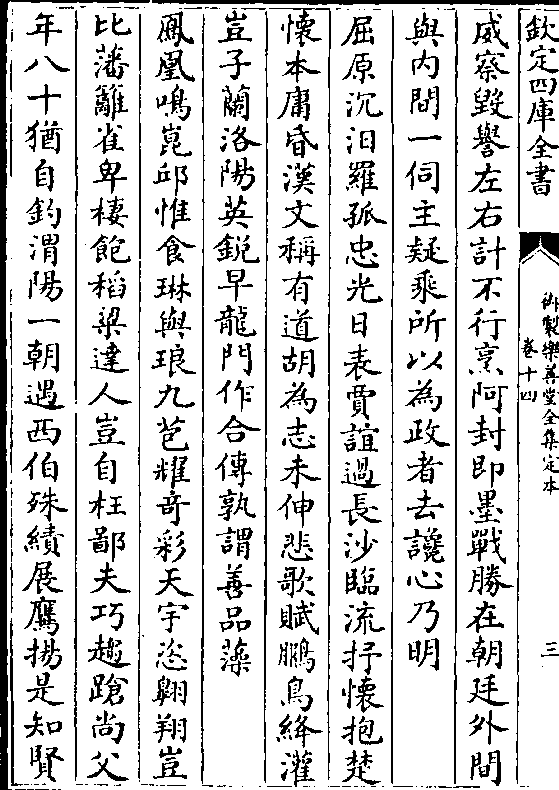 欽定四庫全書
御製樂善堂全集定本
卷十四
三
威察毀譽左右計不行烹阿封即墨戰勝在朝廷外間
與内間一伺主疑乘所以為政者去讒心乃明
屈原沉汨羅孤忠光日表賈誼過長沙臨流抒懷抱楚
懷本庸昏漢文稱有道胡為志未伸悲歌賦鵩鳥絳灌
豈子蘭洛陽英銳早龍門作合傳孰謂善品藻
鳳凰鳴崑邱惟食琳與琅九苞耀奇彩天宇恣翺翔豈
比藩籬雀卑棲飽稻粱達人豈自枉鄙夫巧趨蹌尚父
年八十猶自釣渭陽一朝遇西伯殊績展鷹揚是知賢